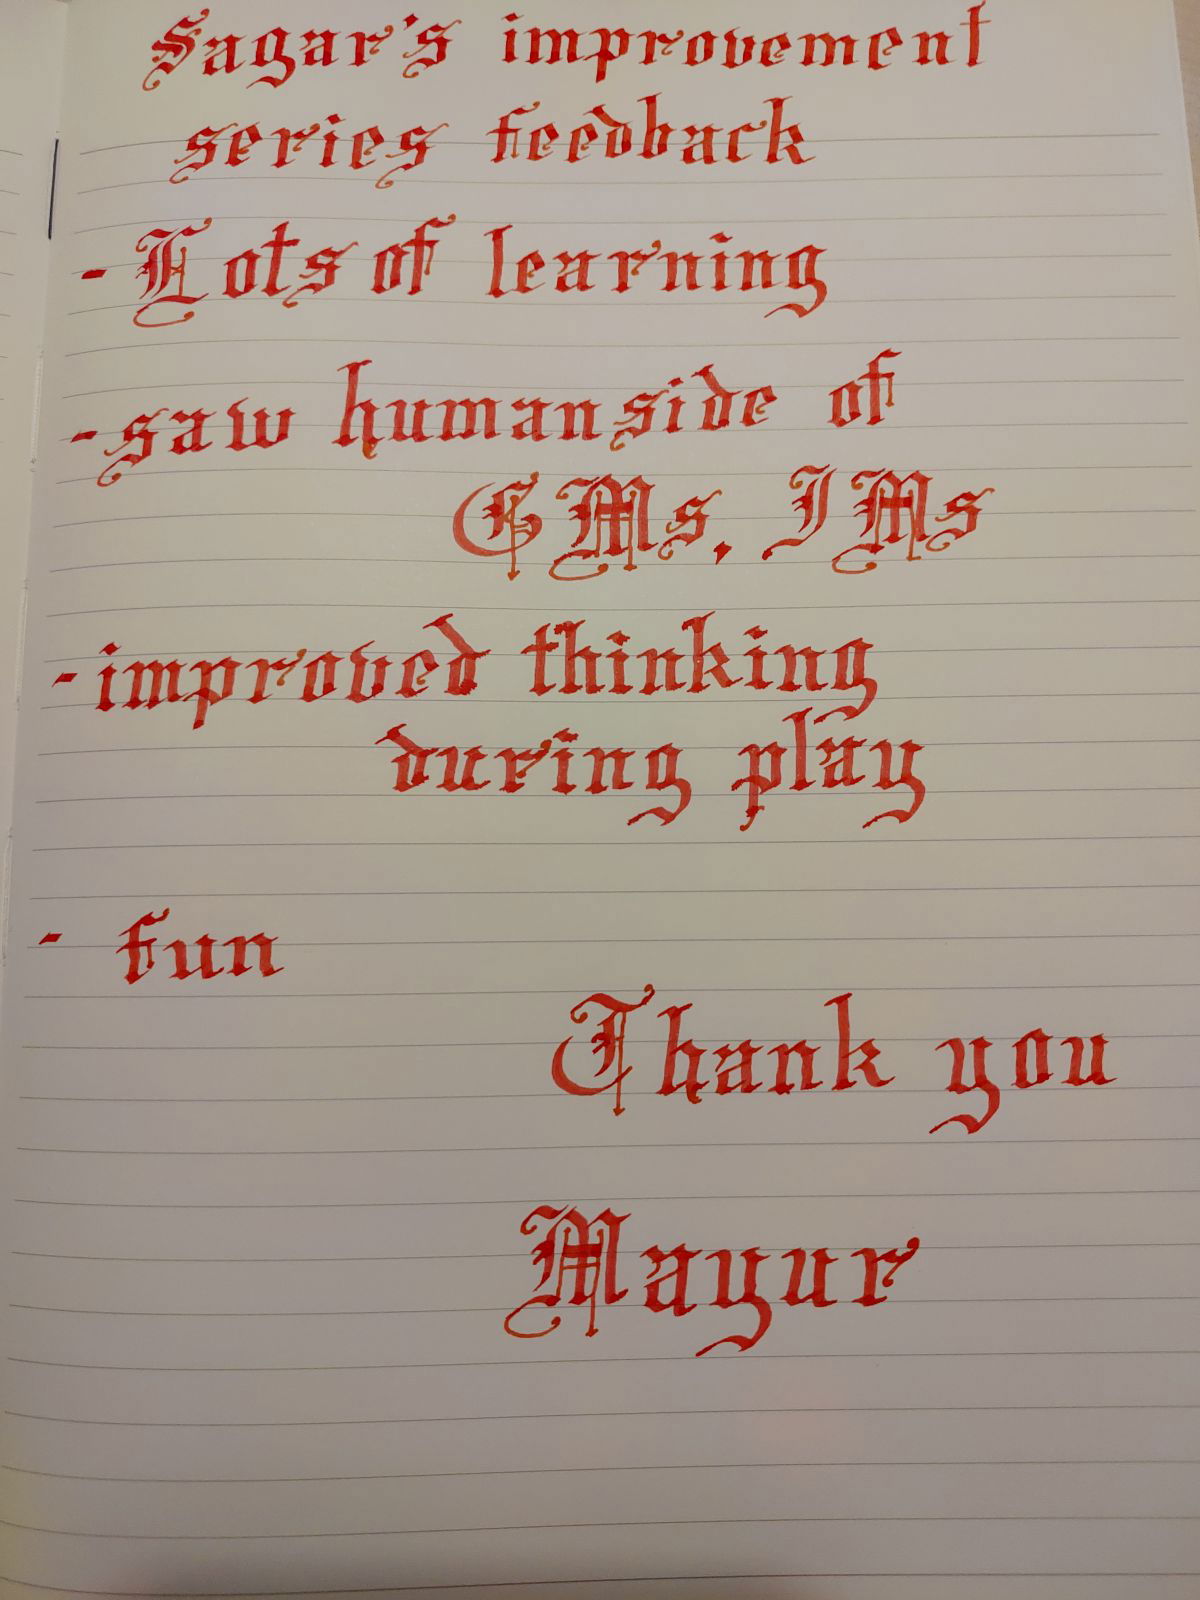 Sagar's improvement
series feedback
- Lots of learning
- saw human side of
GMs, IMs
- improved thinking
during play
- fun
Thank you
Mayur